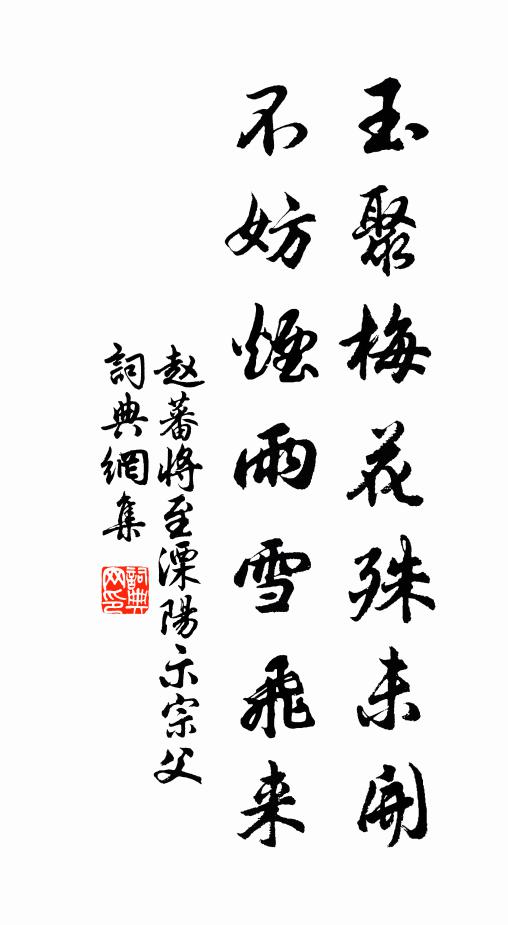 玉聚梅花殊未開
不妨煙雨雪飛来
赵蕃將至溧陽示宗父
詞典網集
詞典网印